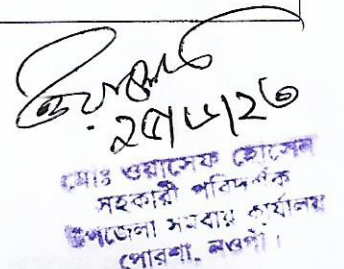 ২৫/৮/২৩
মোঃ ওয়াসেফ হোসেন
সহকারী পরিদর্শক
উপজেলা সমবায় কার্যালয়
পোরশা, নওগাঁ।